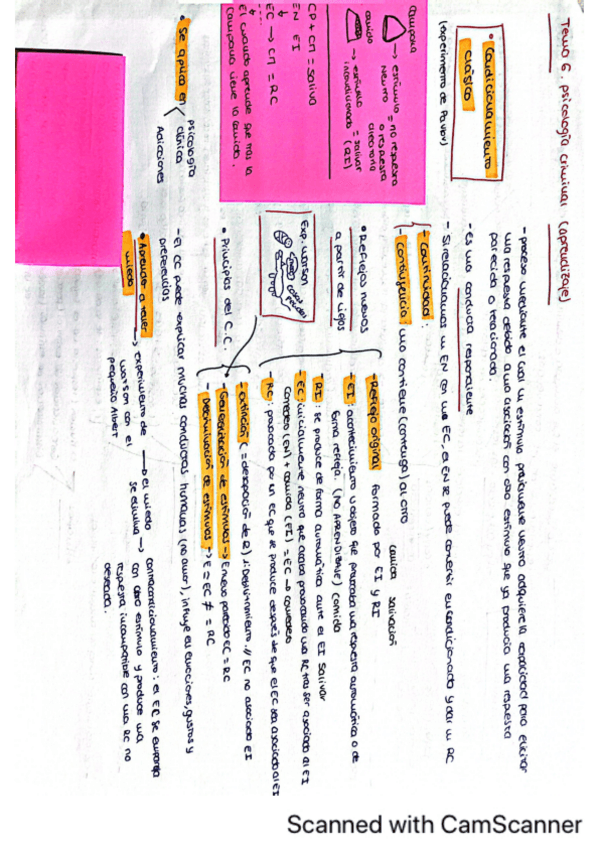 Tema 6. psicología criminal (aprendizaje)
• Condicionamiento
clásico
(experimento de Pavlov)
- proceso mediante el cual un estímulo previamente neutro adquiere la capacidad para elicitar
una respuesta debido a una asociación con otro estímulo que ya producía una respuesta
parecida o relacionada.
- Es una conducta respondiente
- Si relacionamos un EN con uno EC, el EN se puede convertir en condicionado y dar un RC
- Continuidad:
- Contingencia: uno contiene (contenga) al otro
campana → estímulo = no respuesta
neutro o respuesta
aleatoria
comida → estímulo = salivar
incondicionado (RI)
CP + CM = saliva
EN EI
EC → CM = RC
El cuando aprende que tras la
campana viene la comida.
• Reflejos nuevos
a partir de viejos
comida salivación
- Reflejo original formado por EI y RI
- EI: acontecimiento u objeto que provocaba una respuesta automática o de
forma refleja. (NO APRENDIZAJE) comida
- RI: se produce de forma automática ante el EI salivar
- EC: inicialmente neutro que acaba provocando una RC tras ser asociado al EI
comedero (EN) + comida (EI) = EC → comedero
- RC: provocada por un EC que se produce después de que el EC sea asociado al EI
Exp. watson
• Principios del C.C.
- extinción (= desaparición de R) // EC no asociado EI
• Generalización de estímulos → E nuevo parecido EC = RC
- Discriminación de estímulos → E = EC ≠ = RC
• Se aplica en
psicología
clínica
Adicciones
- El CC puede explicar muchas conductas humanas (no amor), influye en emociones, gustos y
preferencias
• Aprender a temer
miedo
→ experimento de
watson con el
pequeño Albert
→ el miedo
se elimina → contracondicionamiento: el EC se empareja
con otro estímulo y produce una
respuesta incompatible con una RC no
deseada.
Scanned with CamScanner